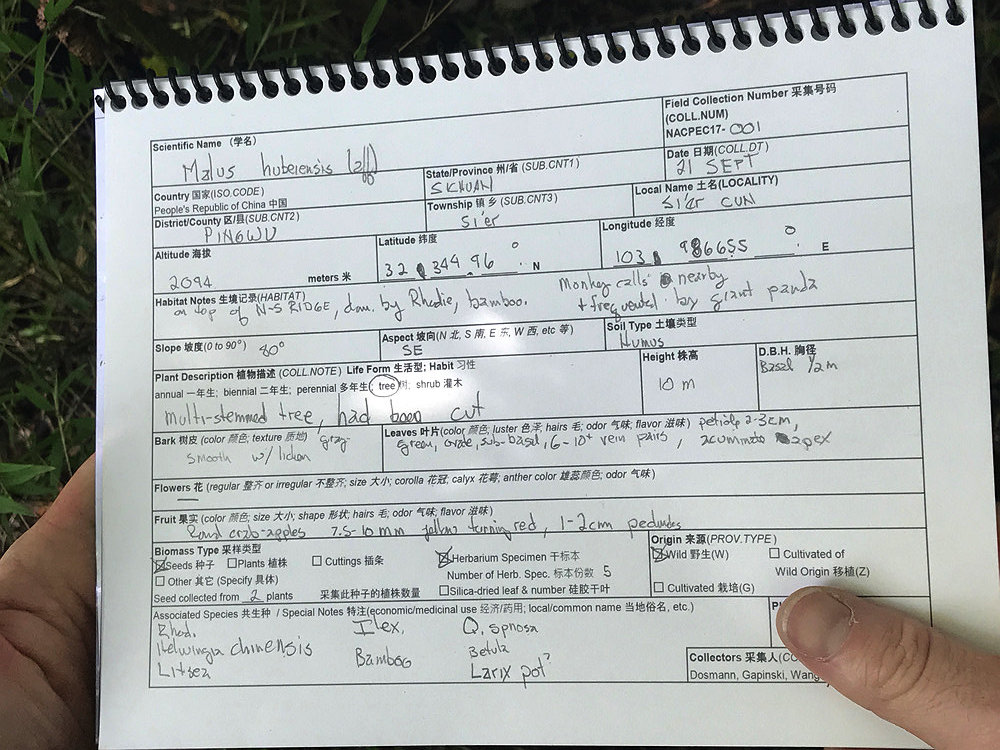 Scientific Name (学名)
Malus hubeiensis (aff)
Field Collection Number 采集号码
(COLL.NUM)
NACPEC17- 001
Country 国家(ISO.CODE)
People's Republic of China 中国
State/Province 州/省 (SUB.CNT1)
SICHUAN
Date 日期(COLL.DT)
21 SEPT
District/County 区/县(SUB.CNT2)
PINGWU
Township 镇 乡 (SUB.CNT3)
Si'er
Local Name 土名(LOCALITY)
Si'er CUN
Altitude 海拔
2094 meters 米
Latitude 纬度
32 . 344 96 ° N
Longitude 经度
103. 986655 ° E
Habitat Notes 生境记录(HABITAT)
on top of N-S RIDGE, dom. by Rhodie, bamboo.
Monkey calls nearby
+ frequented by giant panda
Slope 坡度(0 to 90°) 80°
Aspect 坡向(N 北, S 南, E 东, W 西, etc 等)
SE
Soil Type 土壤类型
Humus
Plant Description 植物描述 (COLL.NOTE) Life Form 生活型; Habit 习性
annual 一年生; biennial 二年生; perennial 多年生; tree 树; shrub 灌木
multi-stemmed tree, had been cut
Height 株高
10 m
D.B.H. 胸径
Basal 1/2 m
Bark 树皮 (color 颜色; texture 质地) gray
smooth w/ lichen
Leaves 叶片(color 颜色; luster 色泽; hairs 毛; odor 气味; flavor 滋味) petiole 2-3cm,
green, ovate, sub-basal, 6-10+ vein pairs, acuminate apex
Flowers 花 (regular 整齐 or irregular 不整齐; size 大小; corolla 花冠; calyx 花萼; anther color 雄蕊颜色; odor 气味)
—
Fruit 果实 (color 颜色; size 大小; shape 形状; hairs 毛; odor 气味; flavor 滋味)
Round crab-apples 7.5-10 mm yellow turning red, 1-2cm peduncles
Biomass Type 采样类型
Seeds 种子 Plants 植株 Cuttings 插条 Herbarium Specimen 干标本
Number of Herb. Spec. 标本份数 5
Other 其它 (Specify 具体)
Silica-dried leaf & number 硅胶干叶
Seed collected from 2 plants 采集此种子的植株数量
Origin 来源(PROV.TYPE)
Wild 野生(W) Cultivated of
Wild Origin 移植(Z)
Cultivated 栽培(G)
Associated Species 共生种 / Special Notes 特注(economic/medicinal use 经济/药用; local/common name 当地俗名, etc.)
Rhod. Ilex, Q. spinosa
Helwingia chinensis Bamboo Betula
Litsea Larix pot?
Collectors 采集人(CO
Dosmann, Gapinski, Wang